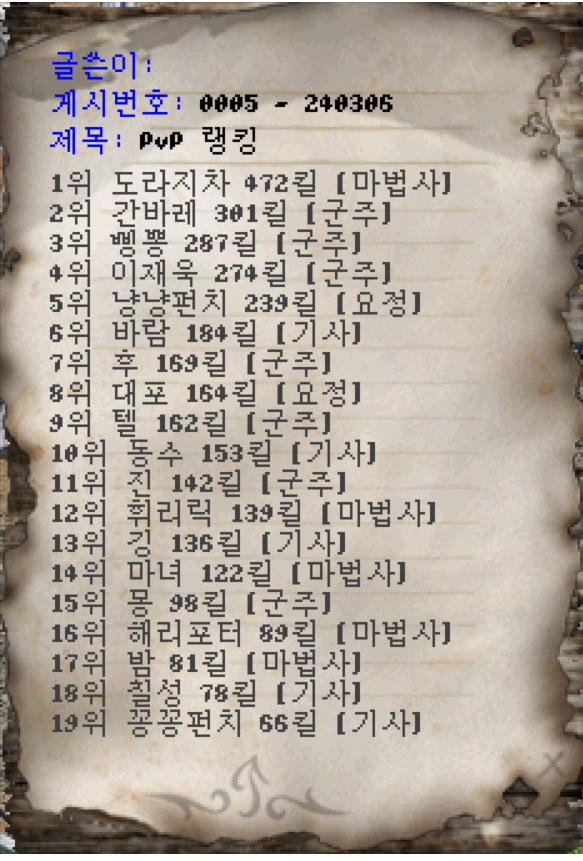 글쓴이:
게시번호: 0005 - 240306
제목: PvP 랭킹
1위 도라지차 472킬 [마법사]
2위 간바레 301킬 [군주]
3위 삥뽕 287킬 [군주]
4위 이재욱 274킬 [군주]
5위 냥냥펀치 239킬 [요정]
6위 바람 184킬 [기사]
7위 후 169킬 [군주]
8위 대포 164킬 [요정]
9위 텔 162킬 [군주]
10위 동수 153킬 [기사]
11위 진 142킬 [군주]
12위 휘리릭 139킬 [마법사]
13위 깅 136킬 [기사]
14위 마녀 122킬 [마법사]
15위 몽 98킬 [군주]
16위 해리포터 89킬 [마법사]
17위 밤 81킬 [마법사]
18위 칠성 78킬 [기사]
19위 꽁꽁펀치 66킬 [기사]